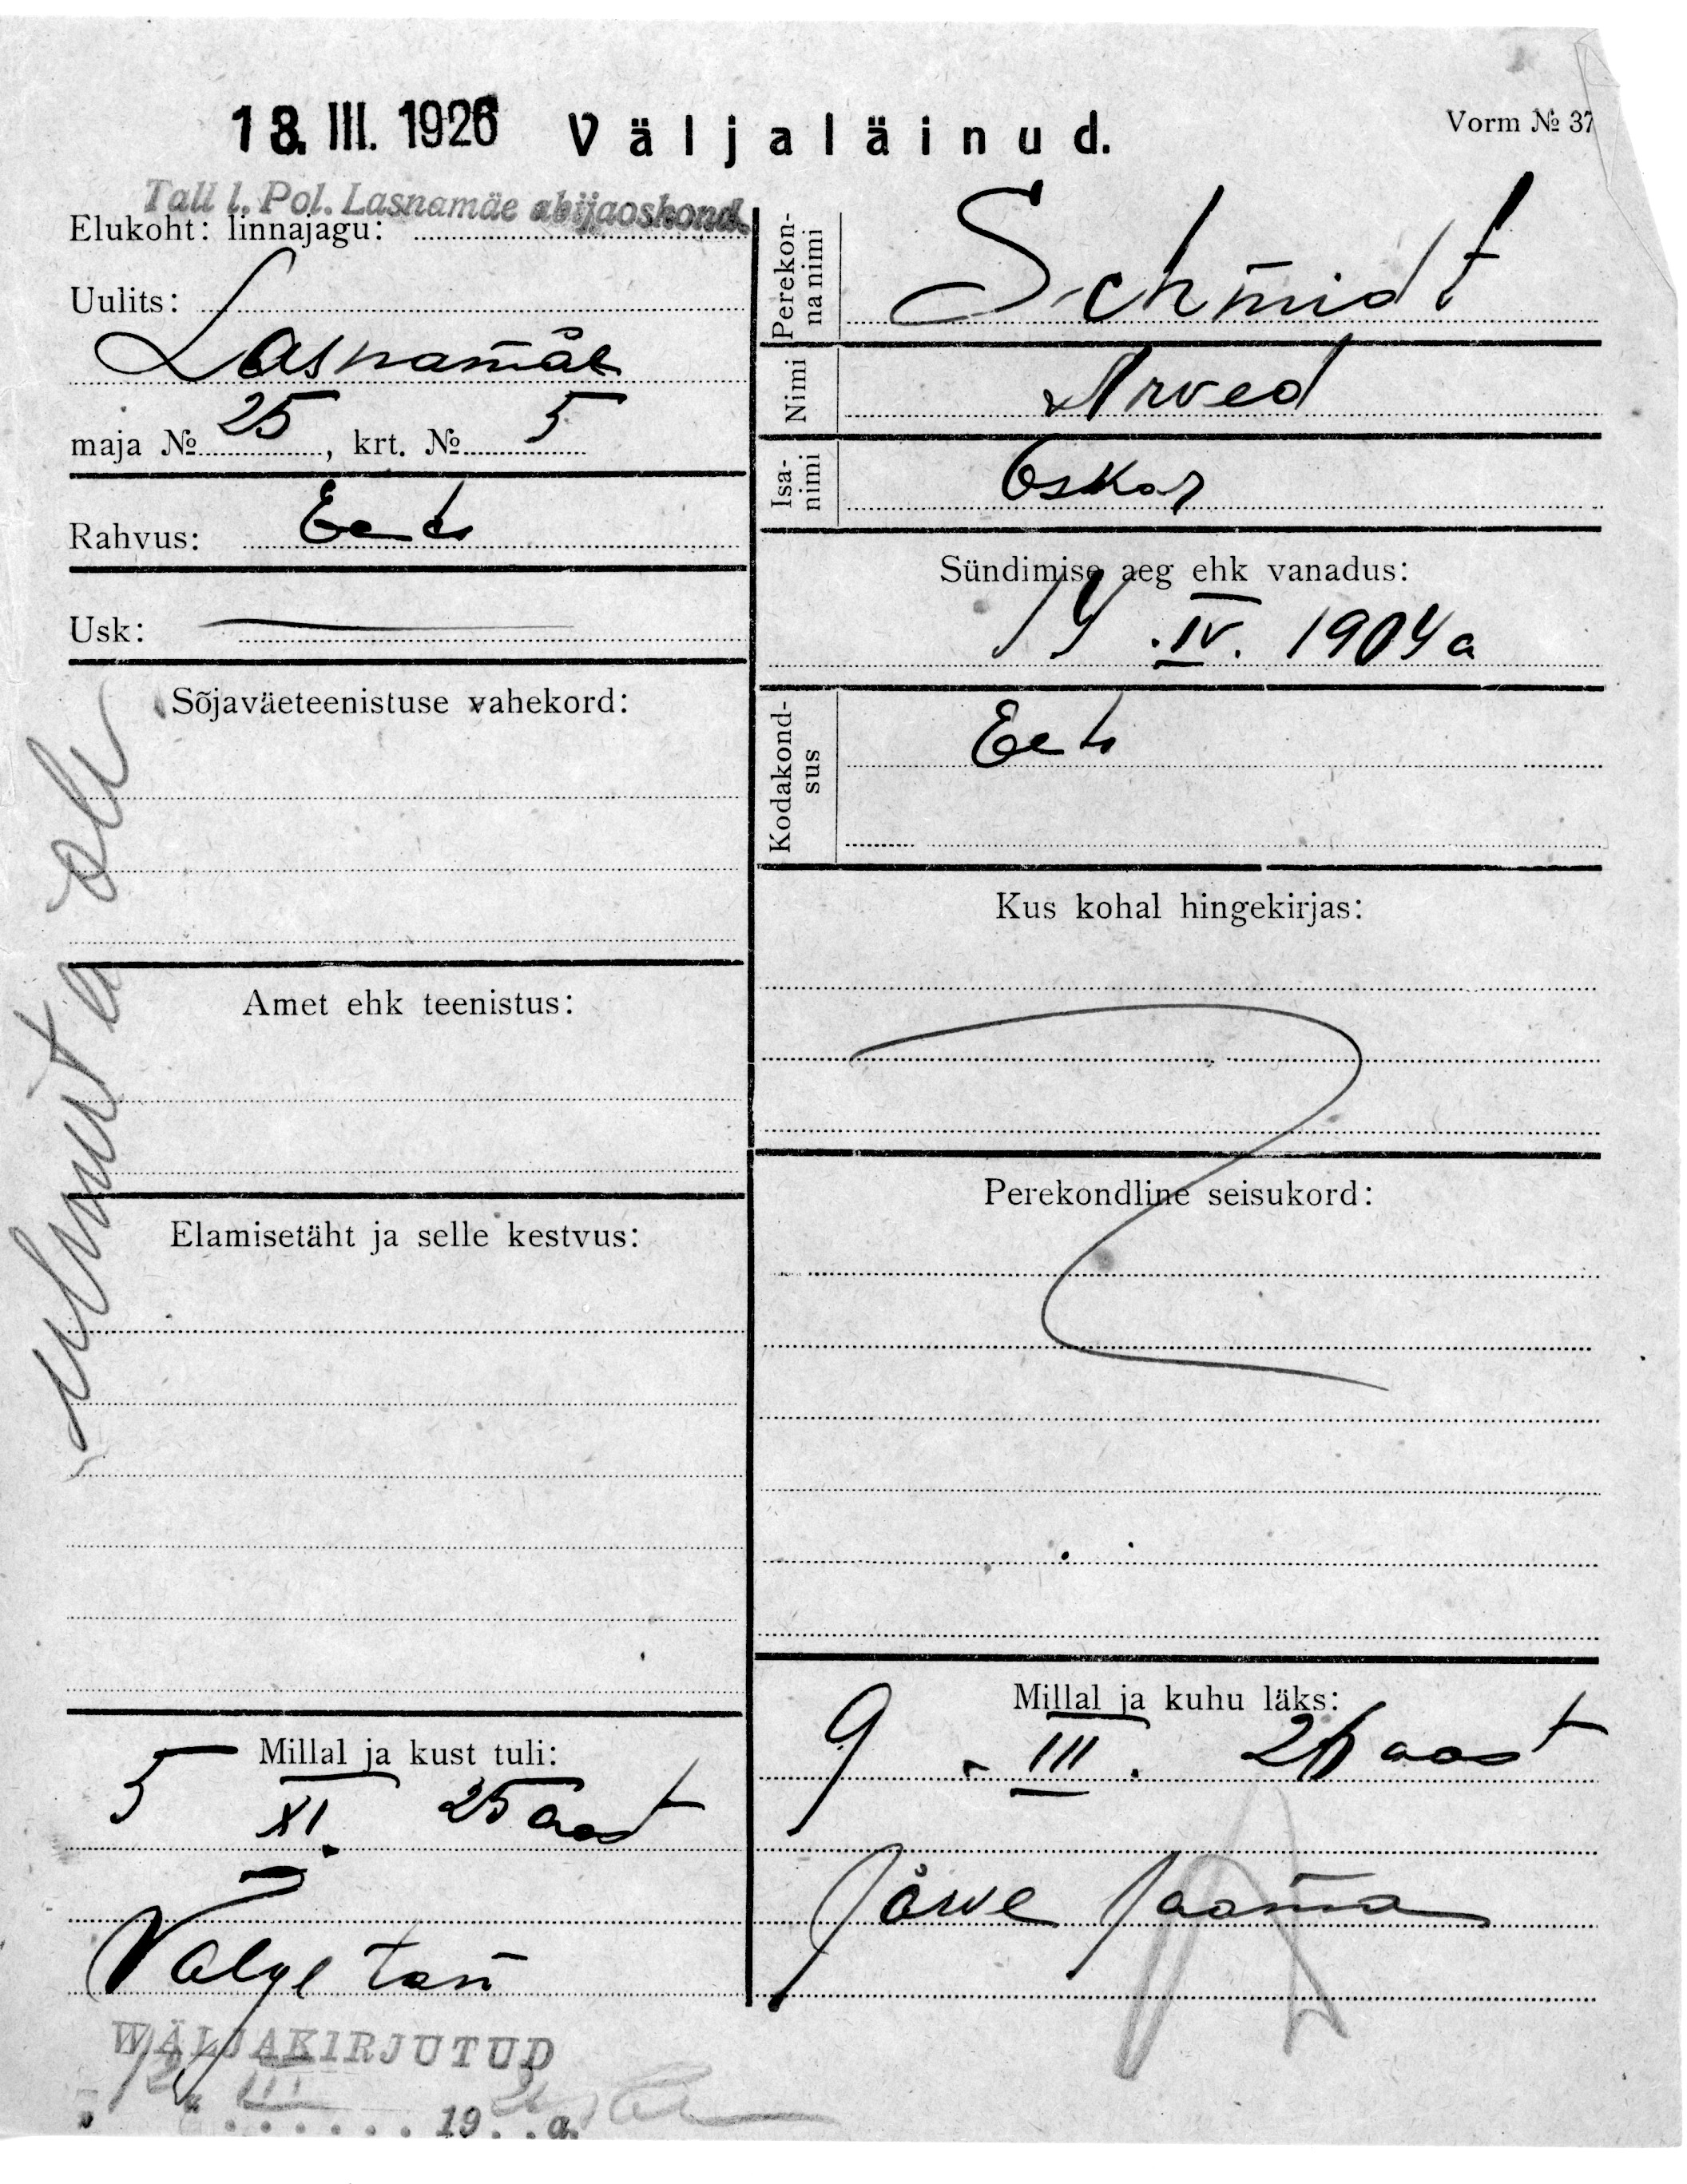 13. III. 1926 Väljaläinud.
Vorm № 37
Tall l. Pol. Lasnamäe abijaoskond.
Elukoht: linnajagu:
Uulits:
Lasnamäe
maja № 25, krt. № 5
Rahvus: Eesti
Usk: —
Sõjaväeteenistuse vahekord:
Amet ehk teenistus:
Elamisetäht ja selle kestvus:
Millal ja kust tuli:
5 XI. 25 aast
Valge tän
WÄLJAKIRJUTUD
12 III
19 a.
Perekon-
na nimi
Schmidt
Nimi
Arved
Isa-
nimi
Oskar
Sündimise aeg ehk vanadus:
14. IV. 1904 a
Kodakond-
sus
Eesti
Kus kohal hingekirjas:
Perekondline seisukord:
Millal ja kuhu läks:
9. III. 26 aast
Järve Jaama